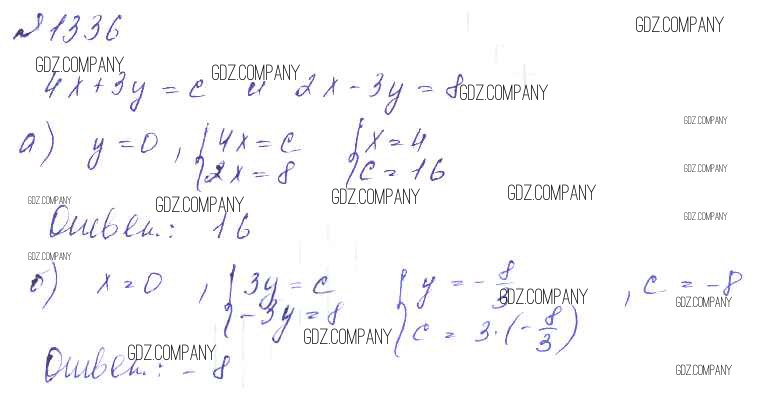 №1336
GDZ.COMPANY
GDZ.COMPANY GDZ.COMPANY
4x + 3y = c и 2x - 3y = 8 GDZ.COMPANY
GDZ.COMPANY
а) y = 0, { 4x = c { x = 4
2x = 8 c = 16 GDZ.COMPANY
GDZ.COMPANY GDZ.COMPANY GDZ.COMPANY GDZ.COMPANY
Ответ: 16 GDZ.COMPANY
GDZ.COMPANY
б) x = 0, { 3y = c { y = -8/3, c = -8
-3y = 8 c = 3·(-8/3) GDZ.COMPANY GDZ.COMPANY
GDZ.COMPANY
Ответ: -8 GDZ.COMPANY GDZ.COMPANY